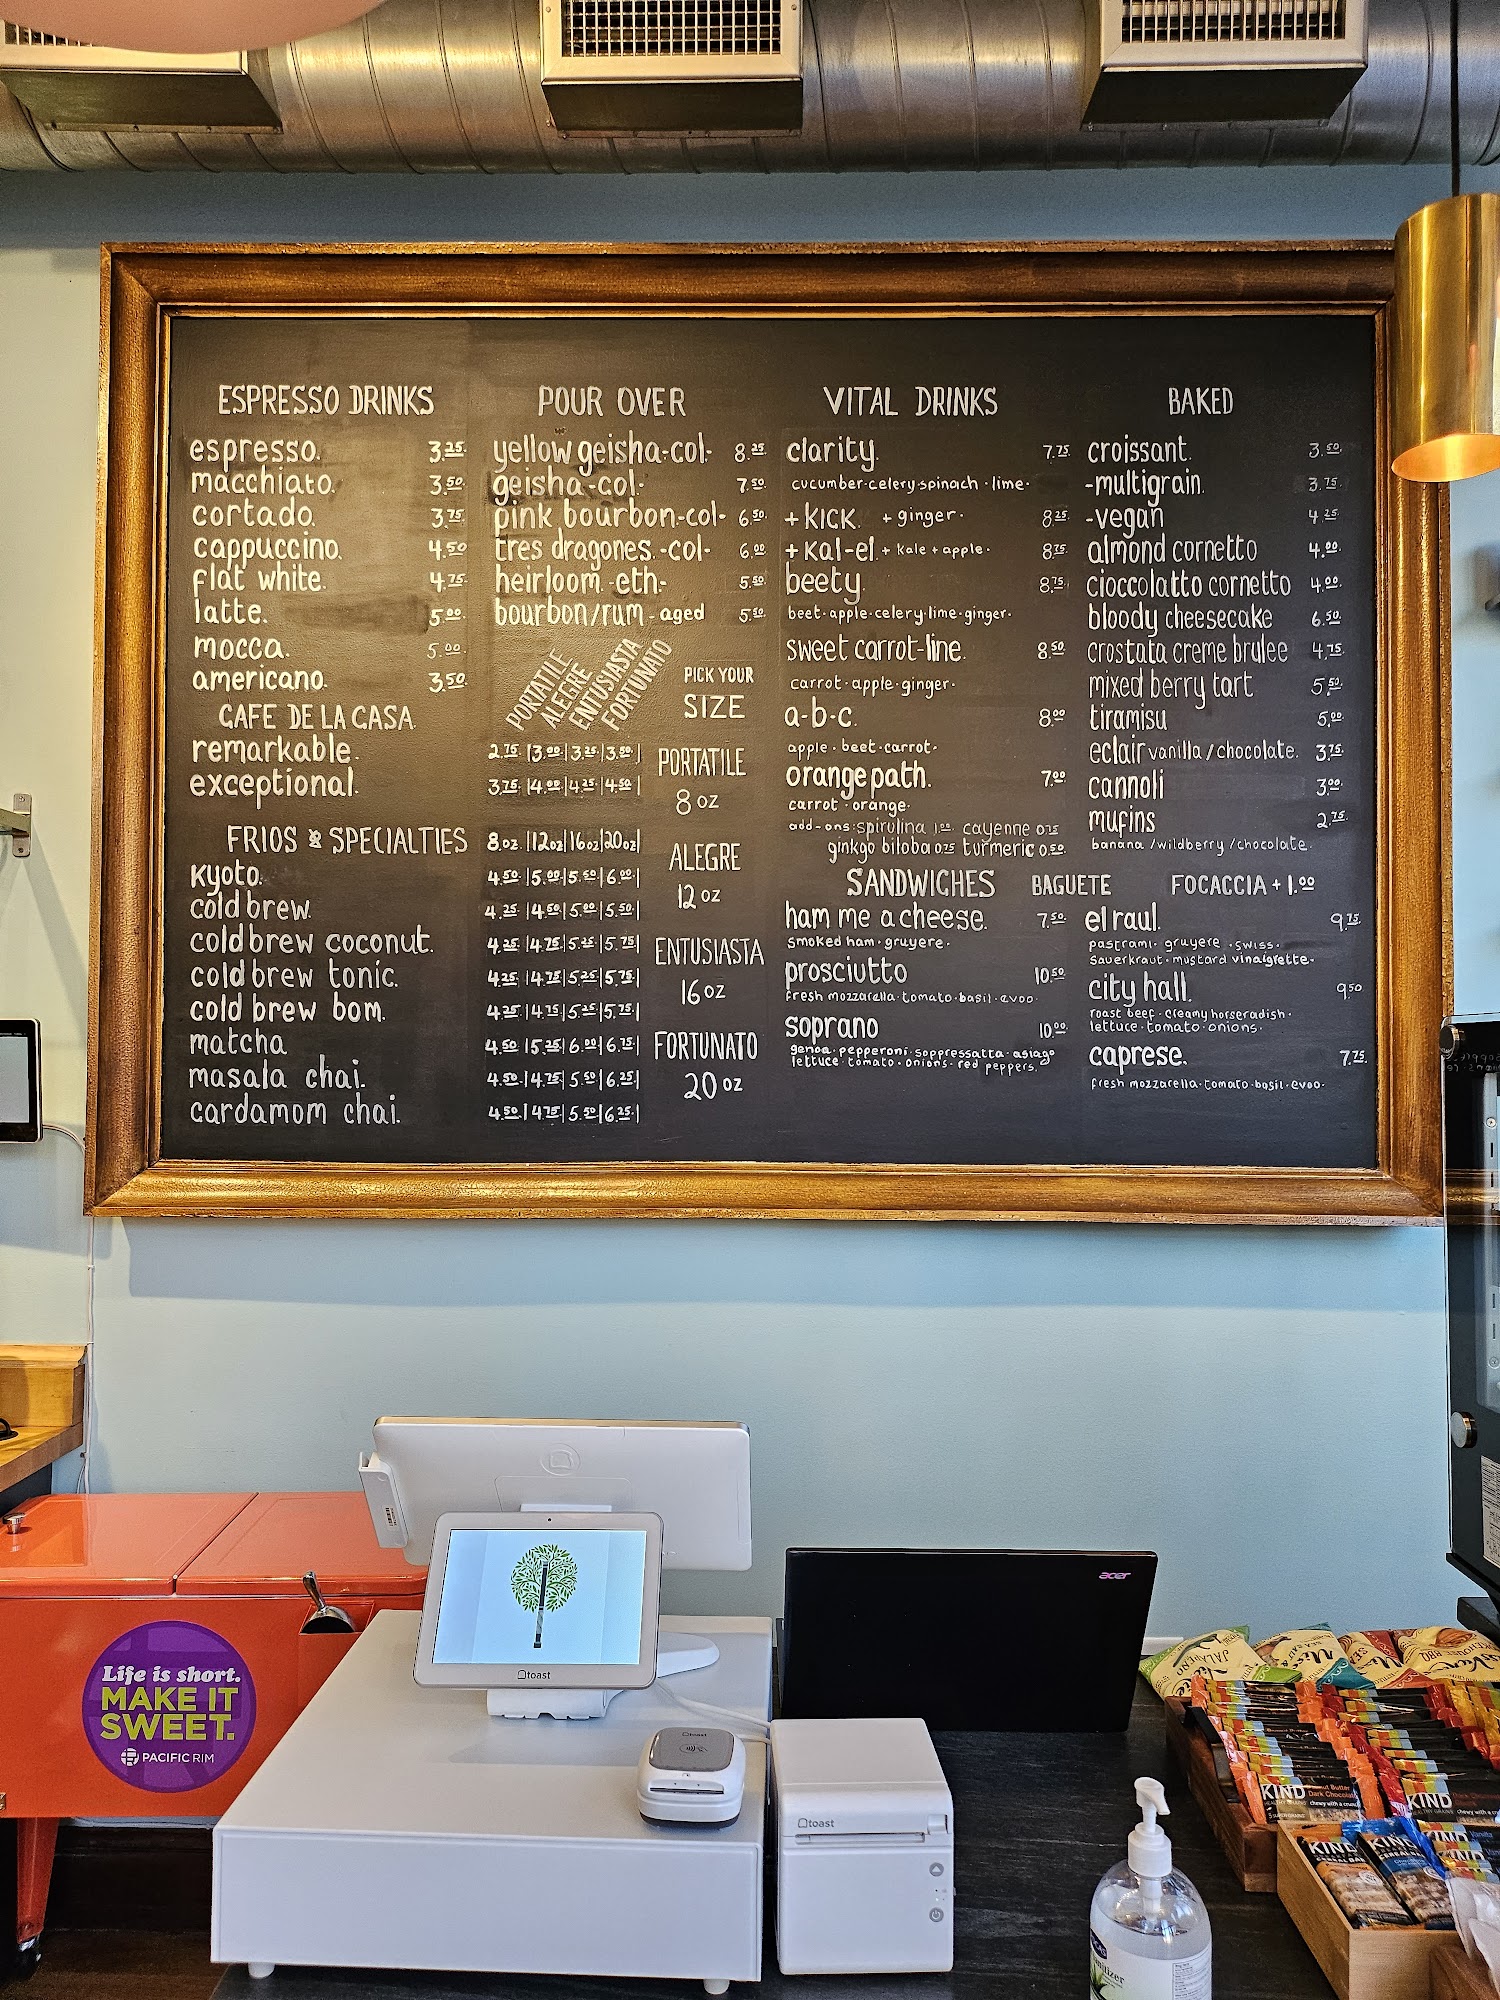 ESPRESSO DRINKS
espresso. 3.25
macchiato. 3.50
cortado. 3.75
cappuccino. 4.50
flat white. 4.75
latte. 5.00
mocca. 5.00
americano. 3.50
CAFE DE LA CASA
remarkable. 2.75 | 3.00 | 3.25 | 3.50 |
exceptional. 3.75 | 4.00 | 4.25 | 4.50 |
FRIOS & SPECIALTIES 8oz | 12oz | 16oz | 20oz |
Kyoto. 4.50 | 5.00 | 5.50 | 6.00 |
cold brew. 4.25 | 4.50 | 5.00 | 5.50 |
cold brew coconut. 4.25 | 4.75 | 5.25 | 5.75 |
cold brew tonic. 4.25 | 4.75 | 5.25 | 5.75 |
cold brew bom. 4.25 | 4.75 | 5.25 | 5.75 |
matcha 4.50 | 5.25 | 6.00 | 6.75 |
masala chai. 4.50 | 4.75 | 5.50 | 6.25 |
cardamom chai. 4.50 | 4.75 | 5.50 | 6.25 |
POUR OVER
yellow geisha-col- 8.25
geisha-col- 7.50
pink bourbon-col- 6.50
tres dragones.-col- 6.00
heirloom-eth- 5.50
bourbon/rum-aged 5.50
PORTATILE
ALEGRE
ENTUSIASTA
FORTUNATO
PICK YOUR
SIZE
PORTATILE
8 oz
ALEGRE
12 oz
ENTUSIASTA
16 oz
FORTUNATO
20 oz
VITAL DRINKS
clarity. 7.75
cucumber·celery·spinach·lime·
+ KICK. + ginger· 8.25
+ Kal-el. + kale + apple· 8.75
beety. 8.75
beet·apple·celery·lime·ginger·
sweet carrot-line. 8.50
carrot·apple·ginger·
a-b-c. 8.00
apple·beet·carrot·
orange path. 7.00
carrot·orange·
add-ons:spirulina 1.00 cayenne 0.75
ginkgo biloba 0.75 turmeric 0.50
SANDWICHES BAGUETE FOCACCIA + 1.00
ham me a cheese. 7.50
smoked ham·gruyere·
prosciutto 10.50
fresh mozzarella·tomato·basil·evoo·
soprano 10.00
genoa·pepperoni·soppressatta·asiago
lettuce·tomato·onions·red peppers·
BAKED
croissant. 3.50
-multigrain. 3.75
-vegan 4.25
almond cornetto 4.00
cioccolatto cornetto 4.00
bloody cheesecake 6.50
crostata creme brulee 4.75
mixed berry tart 5.50
tiramisu 5.00
eclair vanilla / chocolate. 3.75
cannoli 3.00
mufins 2.75
banana / wildberry / chocolate.
el raul. 9.75
pastrami·gruyere·swiss·
sauerkraut·mustard vinaigrette·
city hall. 9.50
roast beef·creamy horseradish·
lettuce·tomato·onions·
caprese. 7.75
fresh mozzarella·tomato·basil·evoo·
Life is short.
MAKE IT
SWEET.
PACIFIC RIM
toast
toast
toast
acer
JALAPEÑO
KIND
Peanut Butter
Dark Chocolate
KIND
KIND
KIND
KIND